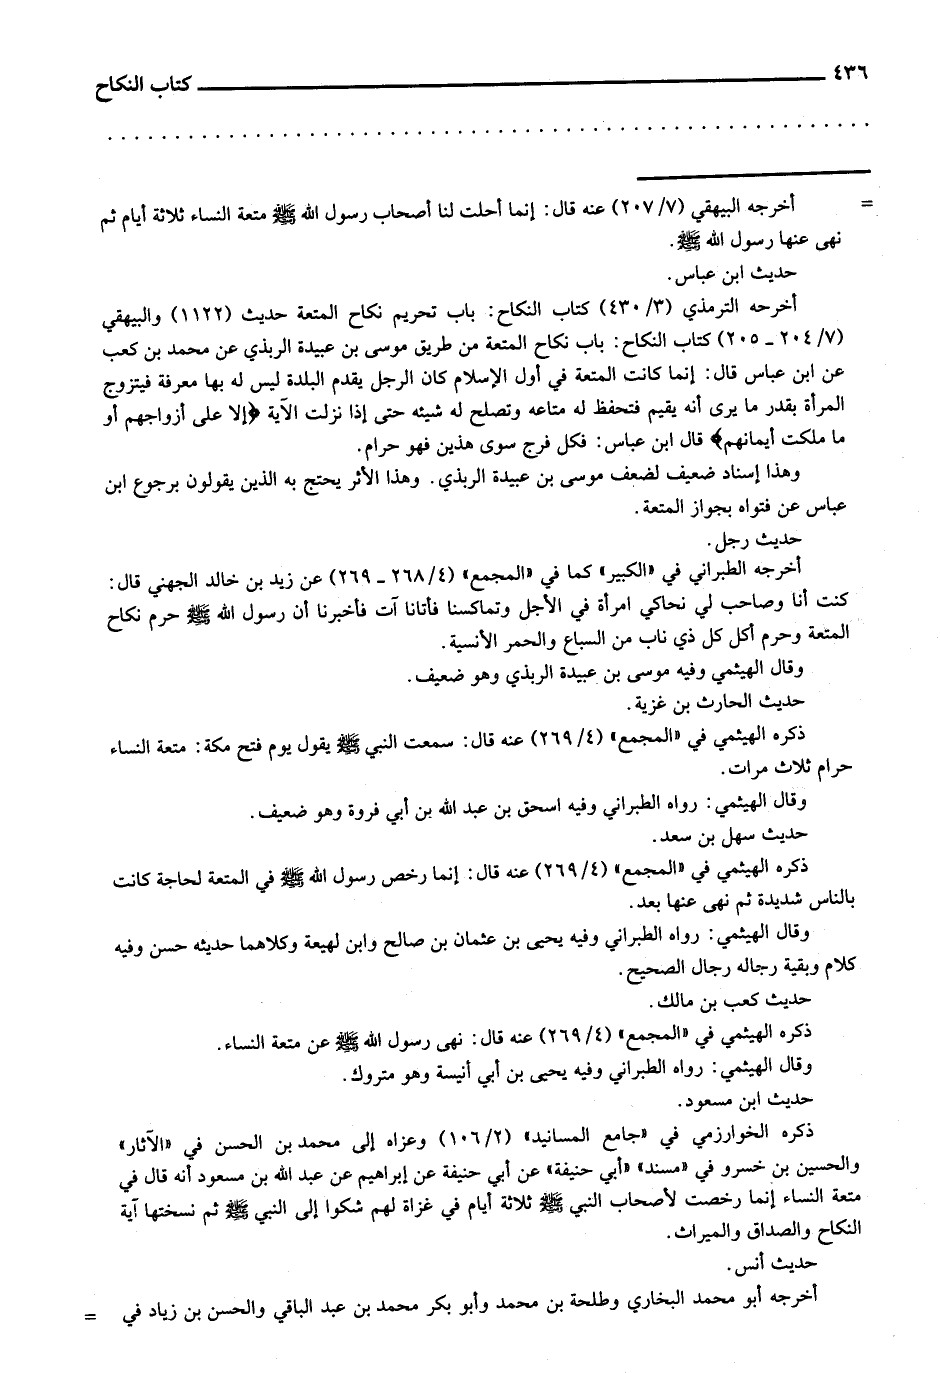 ٤٣٦ كتاب النكاح
= أخرجه البيهقي (٢٠٧/٧) عنه قال: إنما أحلت لنا أصحاب رسول الله ﷺ متعة النساء ثلاثة أيام ثم
نهى عنها رسول الله ﷺ.
حديث ابن عباس.
أخرحه الترمذي (٤٣٠/٣) كتاب النكاح: باب تحريم نكاح المتعة حديث (١١٢٢) والبيهقي
(٢٠٤/٧ ـ ٢٠٥) كتاب النكاح: باب نكاح المتعة من طريق موسى بن عبيدة الربذي عن محمد بن كعب
عن ابن عباس قال: إنما كانت المتعة في أول الإسلام كان الرجل يقدم البلدة ليس له بها معرفة فيتزوج
المرأة بقدر ما يرى أنه يقيم فتحفظ له متاعه وتصلح له شيئه حتى إذا نزلت الآية ﴿إلا على أزواجهم أو
ما ملكت أيمانهم﴾ قال ابن عباس: فكل فرج سوى هذين فهو حرام.
وهذا إسناد ضعيف لضعف موسى بن عبيدة الربذي. وهذا الأثر يحتج به الذين يقولون برجوع ابن
عباس عن فتواه بجواز المتعة.
حديث رجل.
أخرجه الطبراني في «الكبير» كما في «المجمع» (٢٦٨/٤ ـ ٢٦٩) عن زيد بن خالد الجهني قال:
كنت أنا وصاحب لي نحاكي امرأة في الأجل وتماكسنا فأتانا آت فأخبرنا أن رسول الله ﷺ حرم نكاح
المتعة وحرم أكل كل ذي ناب من السباع والحمر الأنسية.
وقال الهيثمي وفيه موسى بن عبيدة الربذي وهو ضعيف.
حديث الحارث بن غزية.
ذكره الهيثمي في «المجمع» (٢٦٩/٤) عنه قال: سمعت النبي ﷺ يقول يوم فتح مكة: متعة النساء
حرام ثلاث مرات.
وقال الهيثمي: رواه الطبراني وفيه اسحق بن عبد الله بن أبي فروة وهو ضعيف.
حديث سهل بن سعد.
ذكره الهيثمي في «المجمع» (٢٦٩/٤) عنه قال: إنما رخص رسول الله ﷺ في المتعة لحاجة كانت
بالناس شديدة ثم نهى عنها بعد.
وقال الهيثمي: رواه الطبراني وفيه يحيى بن عثمان بن صالح وابن لهيعة وكلاهما حديثه حسن وفيه
كلام وبقية رجاله رجال الصحيح.
حديث كعب بن مالك.
ذكره الهيثمي في «المجمع» (٢٦٩/٤) عنه قال: نهى رسول الله ﷺ عن متعة النساء.
وقال الهيثمي: رواه الطبراني وفيه يحيى بن أبي أنيسة وهو متروك.
حديث ابن مسعود.
ذكره الخوارزمي في «جامع المسانيد» (١٠٦/٢) وعزاه إلى محمد بن الحسن في «الآثار»
والحسين بن خسرو في «مسند» «أبي حنيفة» عن أبي حنيفة عن إبراهيم عن عبد الله بن مسعود أنه قال في
متعة النساء إنما رخصت لأصحاب النبي ﷺ ثلاثة أيام في غزاة لهم شكوا إلى النبي ﷺ ثم نسختها آية
النكاح والصداق والميراث.
حديث أنس.
أخرجه أبو محمد البخاري وطلحة بن محمد وأبو بكر محمد بن عبد الباقي والحسن بن زياد في =